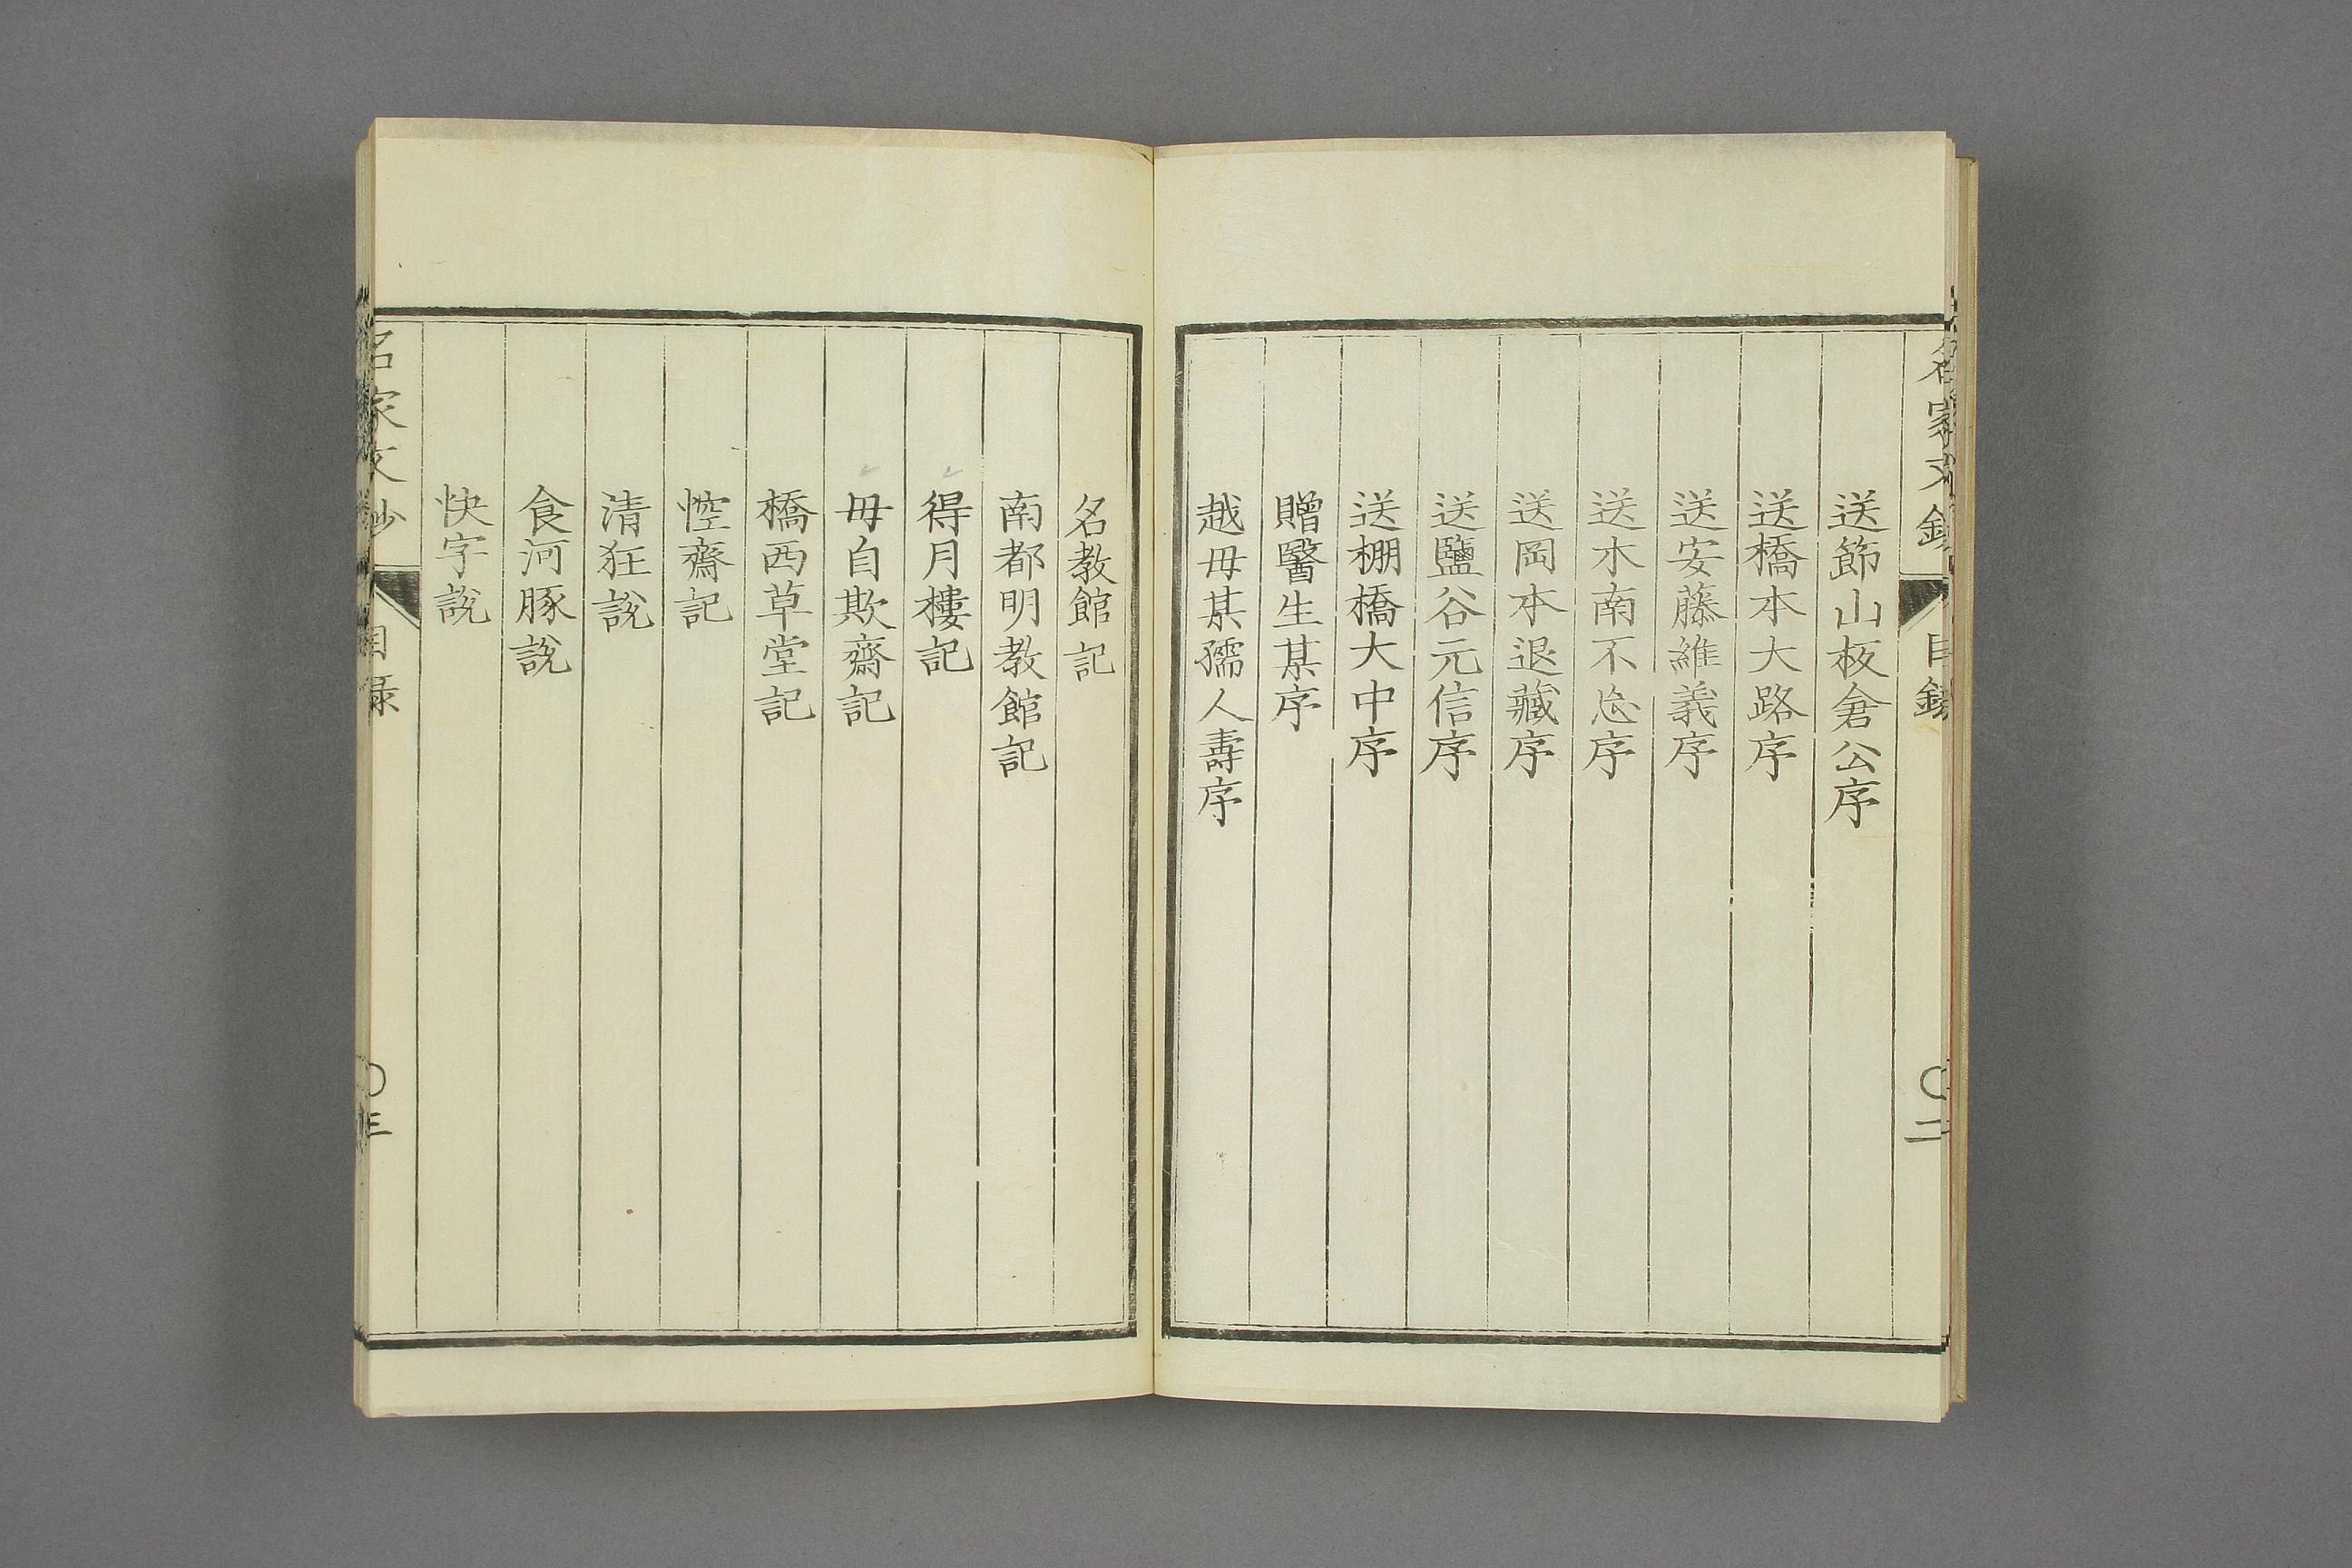 名家文鈔
目錄
〇二
送節山板倉公序
送橋本大路序
送安藤維義序
送水南不怂序
送岡本退藏序
送鹽谷元信序
送棚橋大中序
贈醫生某序
越毋某孺人壽序
名教館記
南都明教館記
得月樓記
毋自欺齋記
橋西草堂記
悾齋記
清狂說
食河豚說
快字說
名家文鈔
目錄
〇三